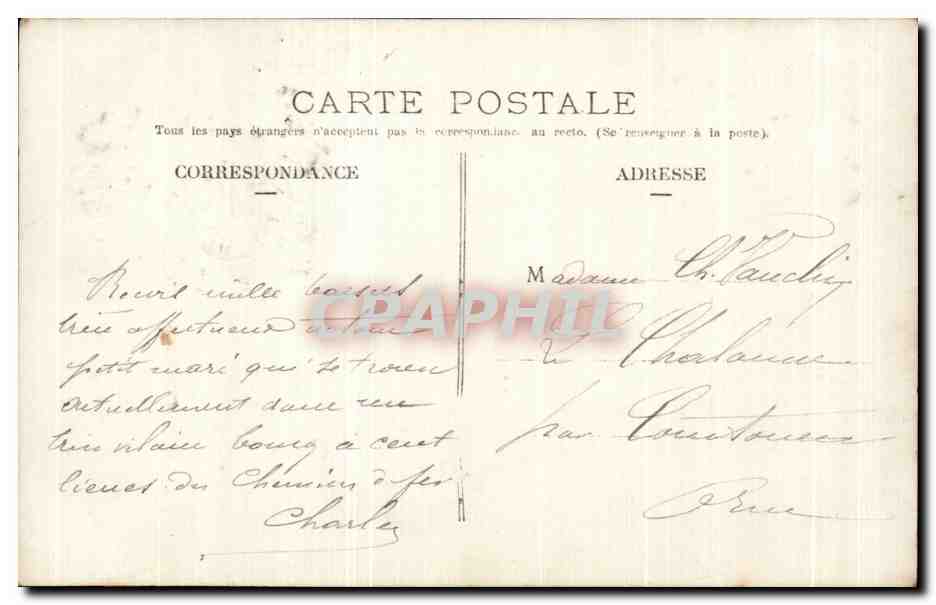 CARTE POSTALE
Tous les pays étrangers n'acceptent pas la correspondance au recto. (Se renseigner à la poste).
CORRESPONDANCE
ADRESSE
mille baisers
très affectueux de ton
petit mari qui se trouve
actuellement dans un
très vilain bourg à cent
lieues du Chemin d fer
Charles
Madame Ch.
par
Orne
CPAPHIL